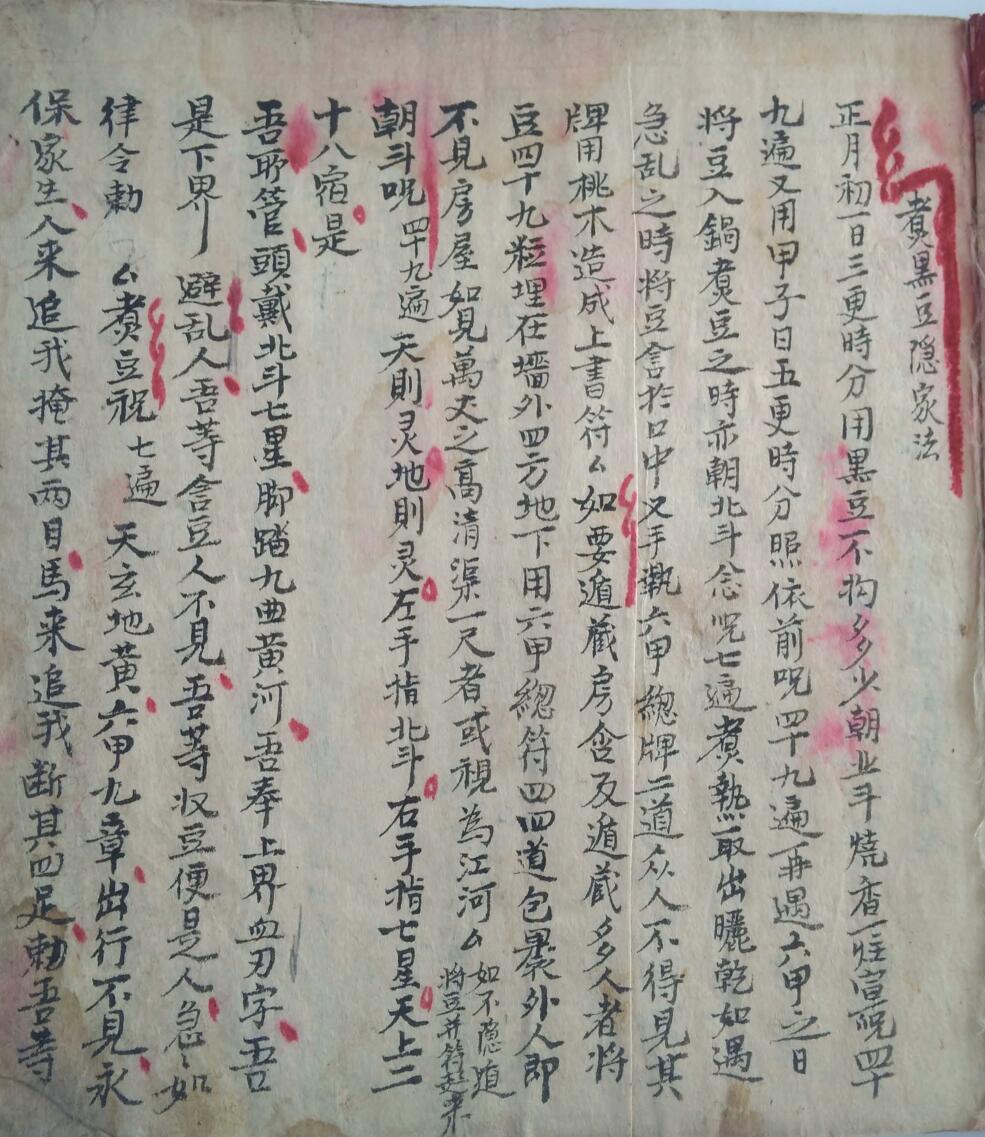 煮黑豆隐家法
正月初一日三更時分用黑豆不拘多少朝北斗燒香一炷宣呪四十
九遍又用甲子日五更時分照依前呪四十九遍再遇六甲之日
将豆入鍋煮豆之時亦朝北斗念呪七遍煮熟取出曬乾如遇
急乱之時将豆含於口中又手執六甲總牌二道众人不得見其
牌用桃木造成上書符么如要遁藏房舍及遁藏多人者将
豆四十九粒埋在墻外四方地下用六甲總符四四道包裹外人即
不見房屋如見萬丈之高清渠一尺者或視為江河么如不隐遁
将豆并符起来
朝斗呪四十九遍天則灵地則灵左手指北斗右手指七星天上二
十八宿是
吾耶管頭戴北斗七星脚踏九曲黄河吾奉上界血刃字吾
是下界避乱人吾等含豆人不見吾等収豆便是人急〻如
律令勅么煮豆祝七遍天玄地黄六甲九章出行不見永
保家生人来追我掩其兩目馬来追我断其四足勅吾等